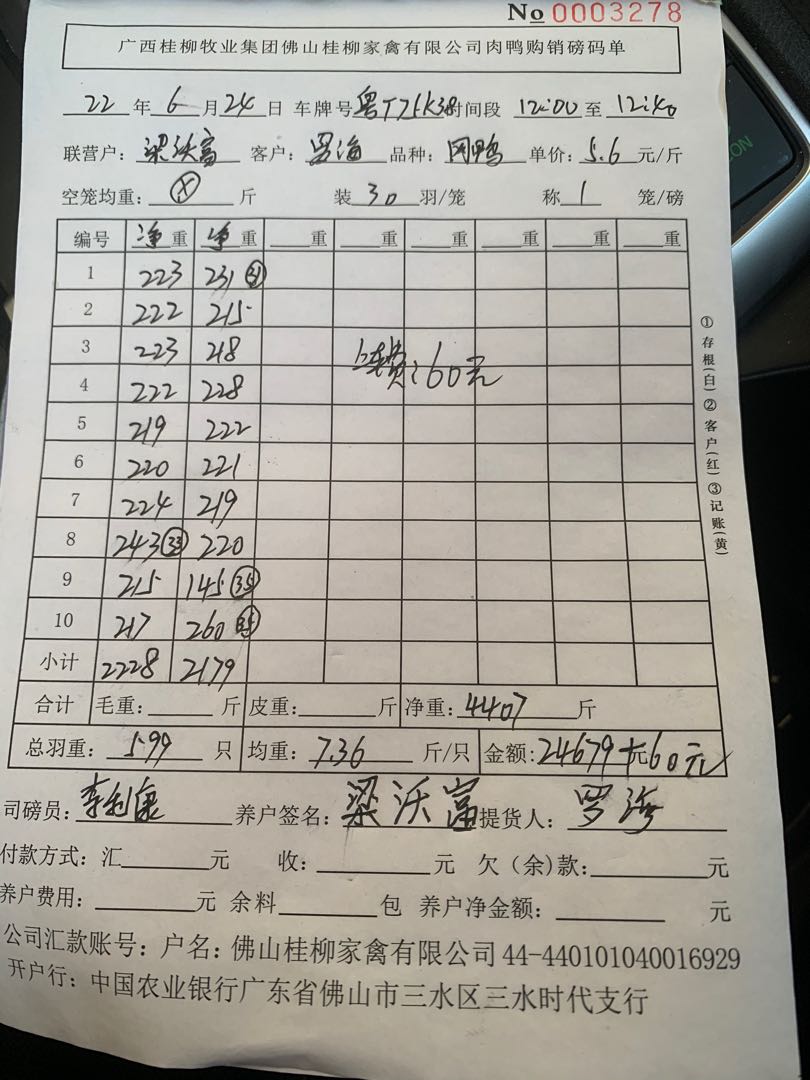 No 0003278
广西桂柳牧业集团佛山桂柳家禽有限公司肉鸭购销磅码单
22 年 6 月 24 日 车牌号 粤T71K38 时间段 12:00 至 12:40
联营户: 梁沃富 客户: 罗海 品种: 网鸭 单价: 5.6 元/斤
空笼均重: 斤 装 30 羽/笼 称 1 笼/磅
编号 净重 净重 重 重 重 重 重 重
1 223 231 31
2 222 215
3 223 218
上车费:60元
4 222 228
5 219 222
6 220 221
7 224 219
8 243 33 220
9 215 145 35
10 217 260 35
小计 2228 2179
合计 毛重: 斤 皮重: 斤 净重: 4407 斤
总羽重: 599 只 均重: 7.36 斤/只 金额: 24679+元60元
司磅员: 李利康 养户签名: 梁沃富 提货人: 罗海
付款方式: 汇 元 收: 元 欠(余)款: 元
养户费用: 元 余料 包 养户净金额: 元
公司汇款账号: 户名: 佛山桂柳家禽有限公司 44-440101040016929
开户行: 中国农业银行广东省佛山市三水区三水时代支行
①存根(白)②客户(红)③记账(黄)